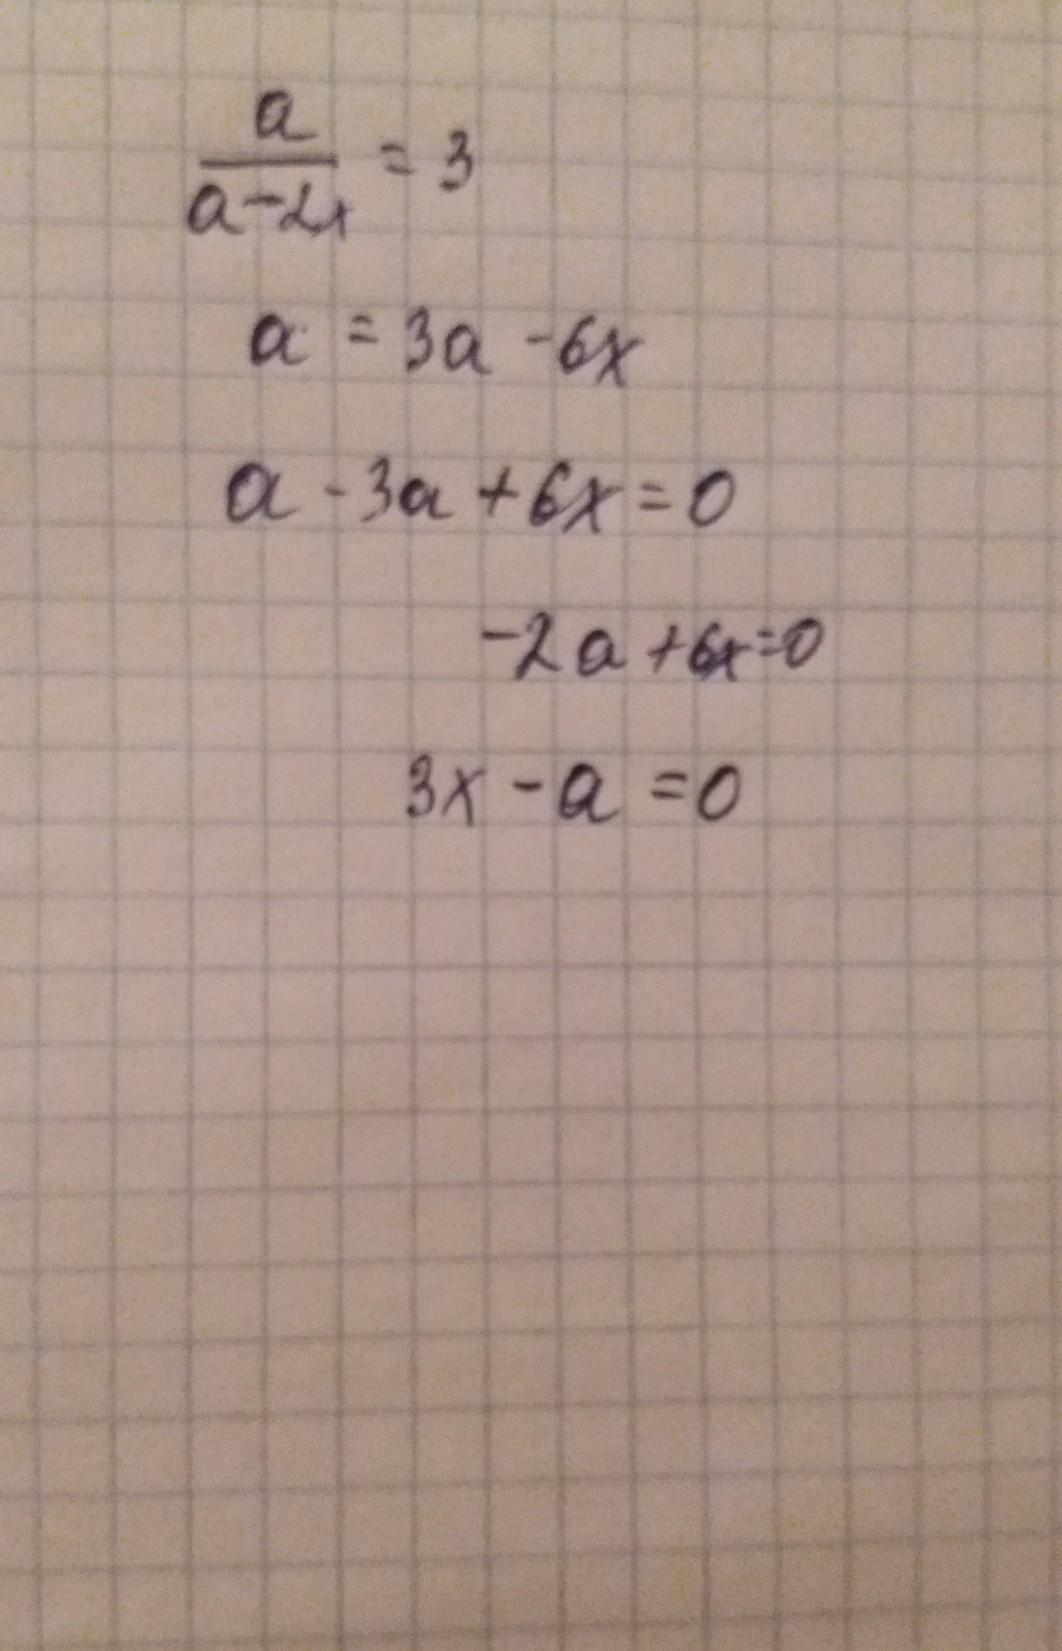 a/(a-2x) = 3
a = 3a - 6x
a - 3a + 6x = 0
-2a + 6x = 0
3x - a = 0